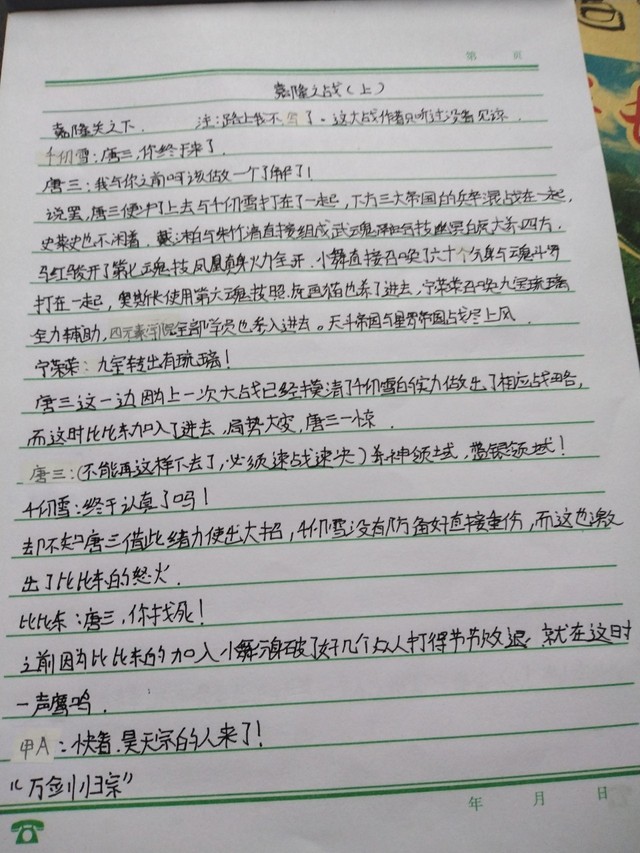 第 页
嘉隆之战(上)
嘉隆关之下. 注:路上我不写了。这大战作者只听过没看见谅.
千仞雪:唐三,你终于来了.
唐三:我与你之前时该做一个了解了!
说罢,唐三便冲上去与千仞雪打在了一起,下方三大帝国的兵卒混战在一起,
史莱史也不闲着. 戴沐白与朱竹清直接组成武魂融合技幽冥白虎大杀四方.
马红俊开了第七魂技凤凰真身火力全开.小舞直接召唤了六十个分身与魂斗罗
打在一起,奥斯卡使用第六魂技照.虎画猫也杀了进去,宁荣荣召唤九宝琉璃
全力辅助,四元素学院全部学员也杀入进去。天斗帝国与星罗帝国占尽上风.
宁荣荣:九宝转出有琉璃!
唐三这一边因为上一次大战已经摸清了千仞雪的实力做出了相应战略,
而这时比比东加入了进去.局势大变,唐三一惊.
唐三:(不能再这样下去了,必须速战速决)杀神领域,蓝银领域!
千仞雪:终于认真了吗!
却不知唐三借此蓄力使出大招,千仞雪没有防备好直接重伤,而这也激
出了比比东的怒火.
比比东:唐三,你找死!
之前因为比比东的加入小舞分身破了好几个众人打得节节败退.就在这时
一声鹰鸣.
甲A:快看.昊天宗的人来了!
“万剑归宗”
年 月 日